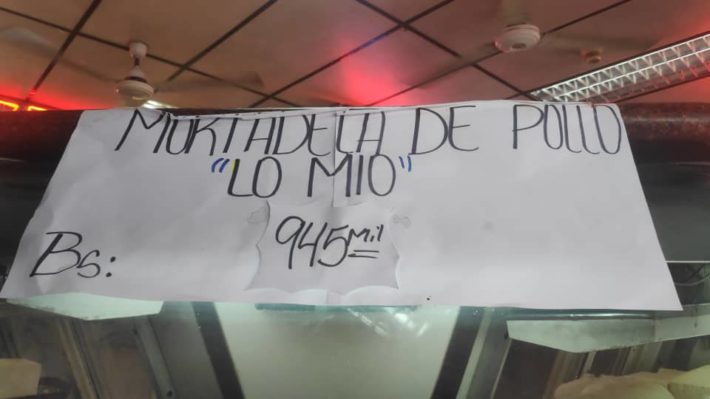 MORTADELA DE POLLO
"LO MIO"
Bs: 945 Mil